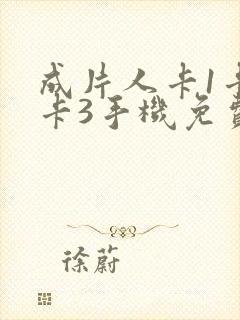 成片人卡1卡
卡3手機免費
徐蔚